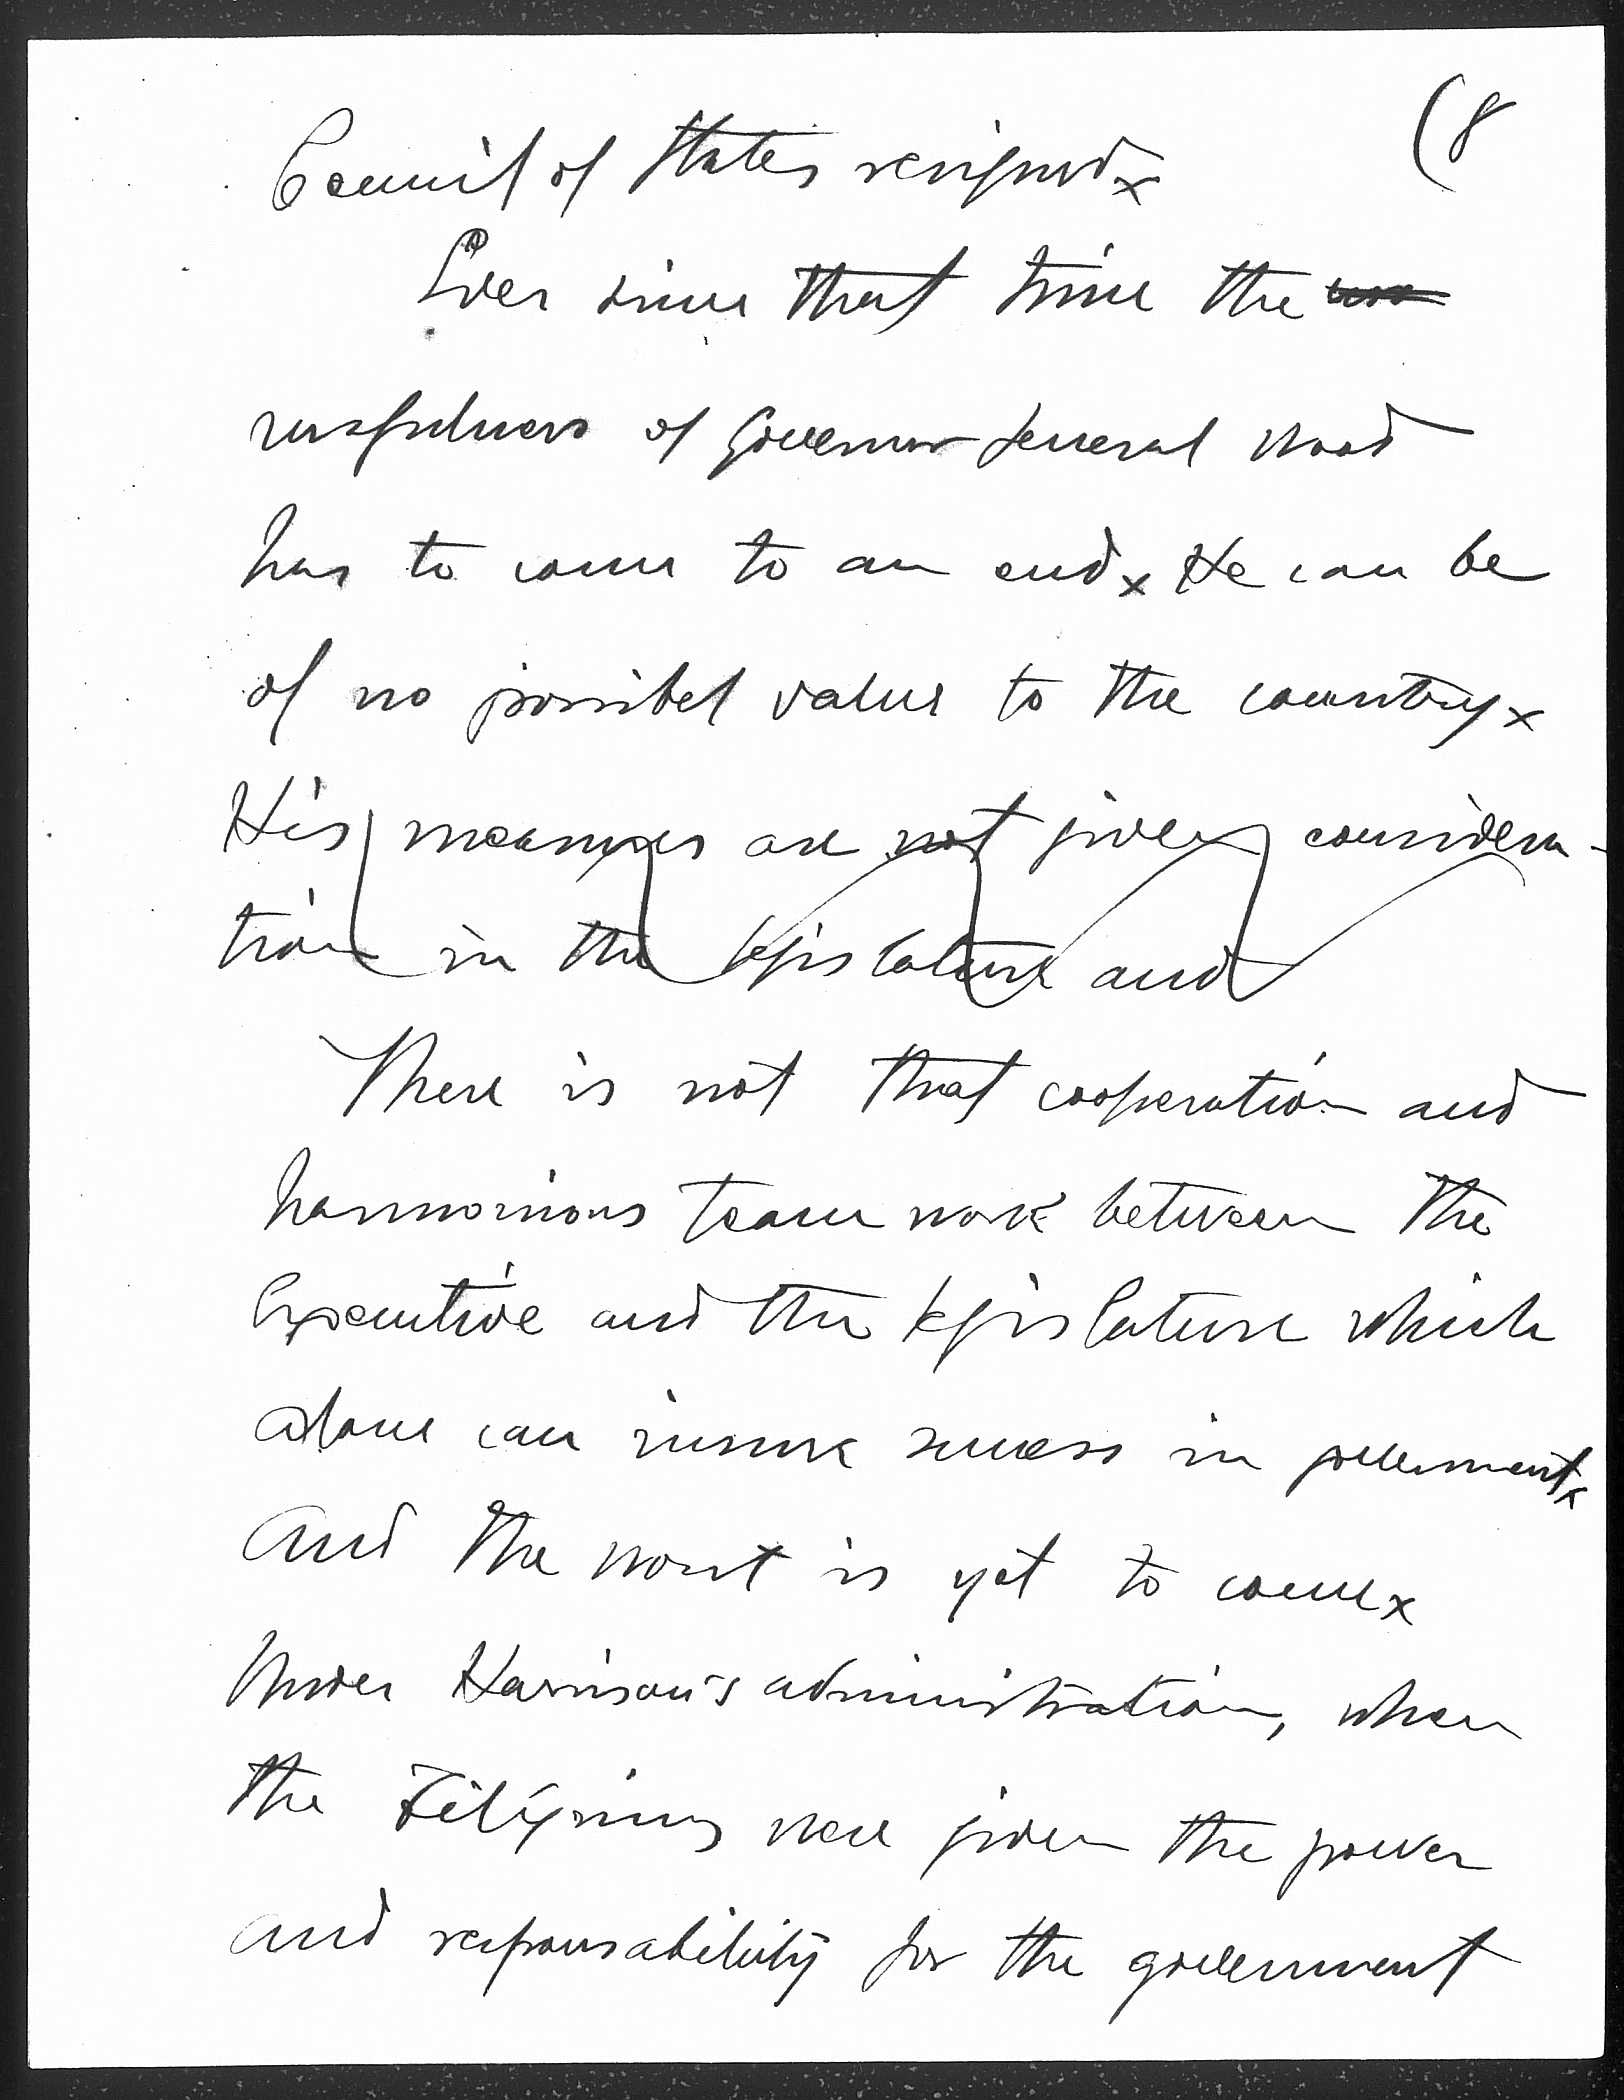 (8
Council of States resigned x
Ever since that time the
usefulness of Governor General Wood
has to come to an end x He can be
of no possibel value to the country x
His measures are not given considera-
tion in the legislature and
There is not that cooperation and
harmonious team work between the
Executive and the legislature which
alone can insure success in government x
And the worst is yet to come x
Under Harrison's administration, when
the Filipinos were given the power
and responsability for the government